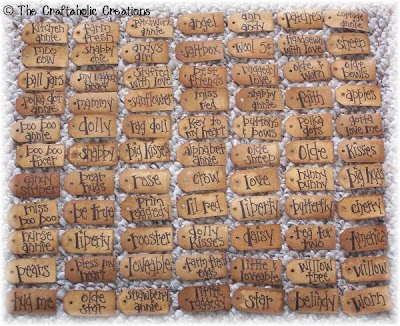 © The Craftaholic Creations
kitchen annie
farm fresh
patchwork annie
angel
ann andy
patches
cottage annie
moo cow
shabby chic
andy's girl
saltbox
wool 5¢
handsewn with love
sheep
bill jars
my raggedy heart
stuffed with love
best friends
raggedy love
olde & worn
olde bowls
polka dot annie
mammy
sunflowers
miss red
shabby annie
faith
apples
boo boo annie
dolly
rag doll
key to my heart
buttons & bows
polka dots
gotta love me
boo boo fixer
shabby
big kisses
alphabet annie
olde sheep
olde
kisses
candy striper
bear hugs
rose
crow
love
hunny bunny
big hugs
miss boo boo
be true
prim raggedy
lil red
liberty
butterfly
cherry
nurse annie
liberty
rooster
dolly kisses
daisy
tea for two
America
pears
bless my heart
loveable
farm fresh eggs
little & loveable
willow tree
willow
hug me
olde star
strawberry annie
little raggedy
star
belindy
worn